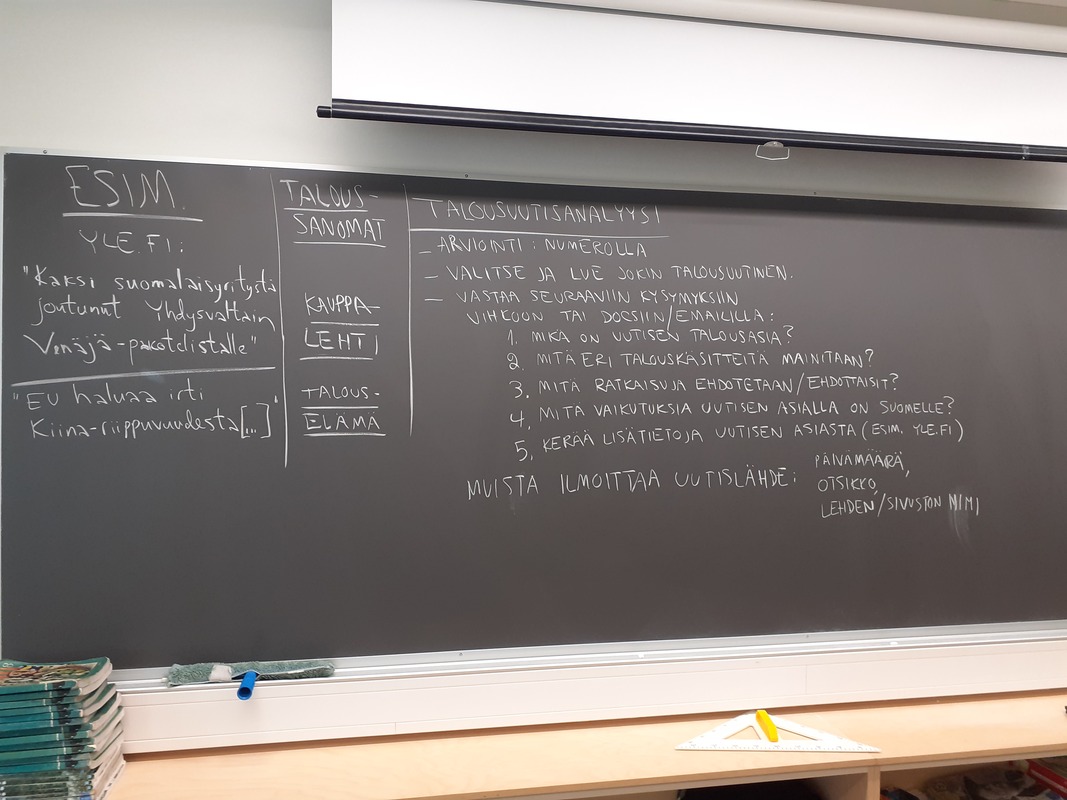 ESIM.
YLE.FI:
"Kaksi suomalaisyritystä
joutunut Yhdysvaltain
Venäjä-pakotelistalle"
"EU haluaa irti
Kiina-riippuvuudesta[...]"
TALOUS-
SANOMAT
KAUPPA-
LEHTI
TALOUS-
ELÄMÄ
TALOUSUUTISANALYYSI
- ARVIOINTI: NUMEROLLA
- VALITSE JA LUE JOKIN TALOUSUUTINEN.
- VASTAA SEURAAVIIN KYSYMYKSIIN
VIHKOON TAI DOCSIIN/EMAILILLA:
1. MIKÄ ON UUTISEN TALOUSASIA?
2. MITÄ ERI TALOUSKÄSITTEITÄ MAINITAAN?
3. MITÄ RATKAISUJA EHDOTETAAN/EHDOTTAISIT?
4. MITÄ VAIKUTUKSIA UUTISEN ASIALLA ON SUOMELLE?
5. KERÄÄ LISÄTIETOJA UUTISEN ASIASTA (ESIM. YLE.FI)
MUISTA ILMOITTAA UUTISLÄHDE: PÄIVÄMÄÄRÄ,
OTSIKKO,
LEHDEN/SIVUSTON NIMI